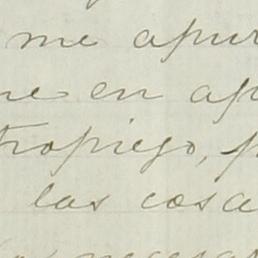 me apur
ne en ap
tropiego, p
las cosa